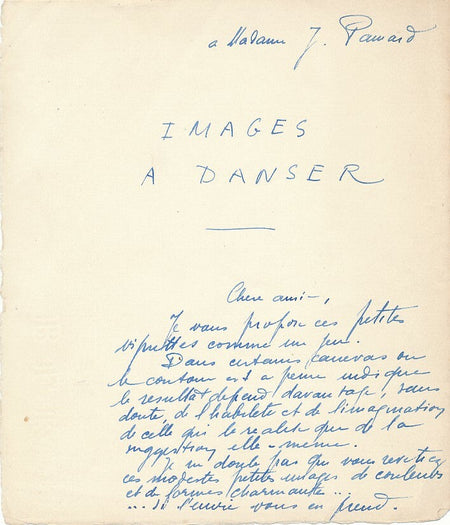 a Madame J. Paward
IMAGES
A DANSER
Chere amie,
Je vous propose ces petites
vignettes comme un jeu.
Dans certains canevas ou
le contour est a peine indique
le resultat depend davantage, sans
doute, de l'habilete et de l'imagination
de celle qui le realise que de la
suggestion elle-meme.
Je ne doute pas que vous revetiez
ces modestes petites images de couleurs
et de formes charmantes...
... si l'envie vous en prend.